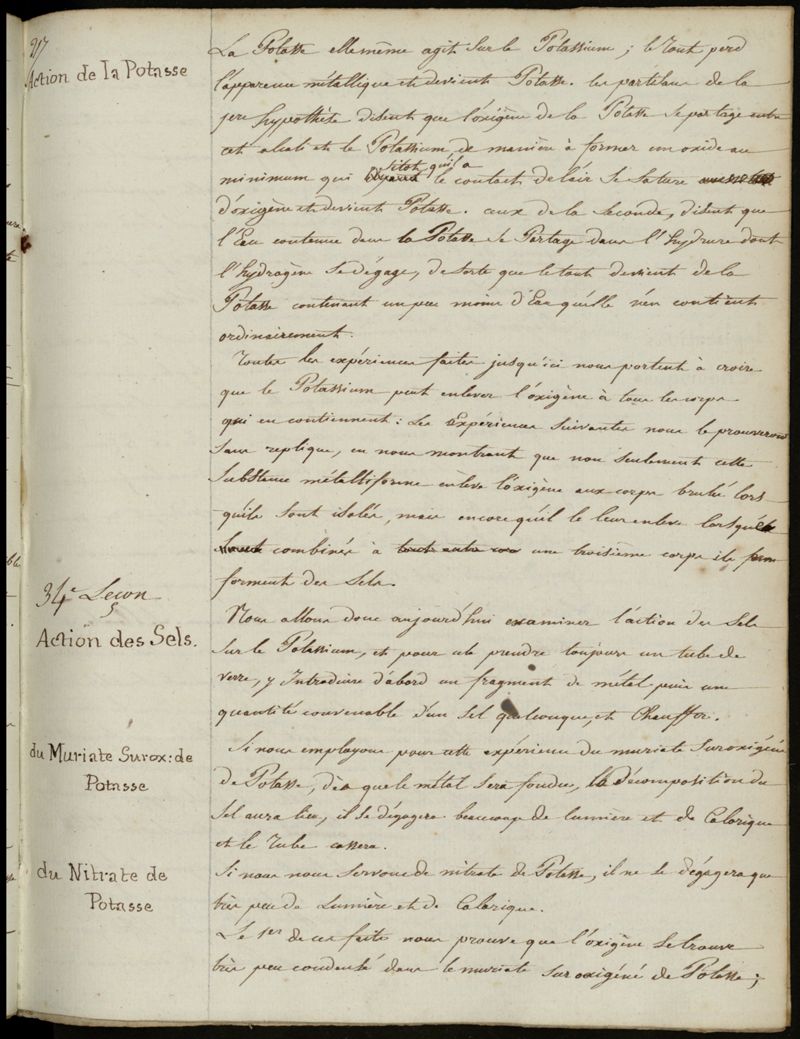 217
Action de la Potasse
La Potasse elle même agit sur le Potassium ; le tout perd
l'apparence métallique et devient Potasse. les partisans de la
1ere hypothèse disent que l'oxigène de la Potasse se partage entre
cet alcali et le Potassium de manière à former un oxide au
minimum qui sitot qu'il a le contact de l'air se sature
d'oxigène et devient Potasse. ceux de la seconde, disent que
l'Eau contenue dans la Potasse se Partage dans l'hydrure dont
l'hydrogène se dégage, de sorte que le tout devient de la
Potasse contenant un peu moins d'Eau qu'elle n'en contient
ordinairement.
Toutes les expériences faites jusqu'ici nous portent à croire
que le Potassium peut enlever l'oxigène à tous les corps
qui en contiennent : Les Expériences suivantes nous le prouveront
sans replique, en nous montrant que non seulement cette
substance métalliforme enlève l'oxigène aux corps brulés lors
qu'ils sont isolés, mais encore qu'il le leur enlève lorsque
combinés à une troisième corps ils
forment des Sels.
34e Leçon
Action des Sels.
Nous allons donc aujourd'hui examiner l'action des Sels
sur le Potassium, et pour cela prendre toujours un tube de
verre, y Introduire d'abord un fragment de métal puis une
quantité convenable d'un Sel quelconque, et Chauffer.
du Muriate Surox: de
Potasse
Si nous employons pour cette expérience du muriate Suroxigéné
de Potasse, dès que le métal sera fondu, la décomposition du
Sel aura lieu, il se dégagera beaucoup de lumière et de Calorique
et le Tube cassera.
du Nitrate de
Potasse
Si nous nous servons de nitrate de Potasse, il ne se dégagera que
très peu de Lumière et de Calorique.
Le 1er de ces faits nous prouve que l'oxigène se trouve
très peu condensé dans le muriate suroxigéné de Potasse ;